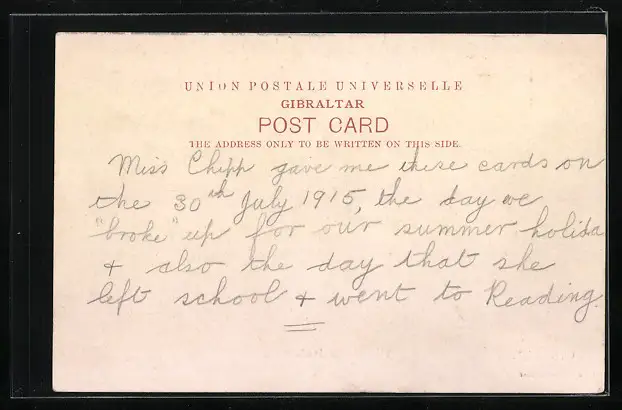 UNION POSTALE UNIVERSELLE
GIBRALTAR
POST CARD
THE ADDRESS ONLY TO BE WRITTEN ON THIS SIDE.
Miss Chipp gave me these cards on
the 30th July 1915, the day we
"broke" up for our summer holida
+ also the day that she
left school + went to Reading.